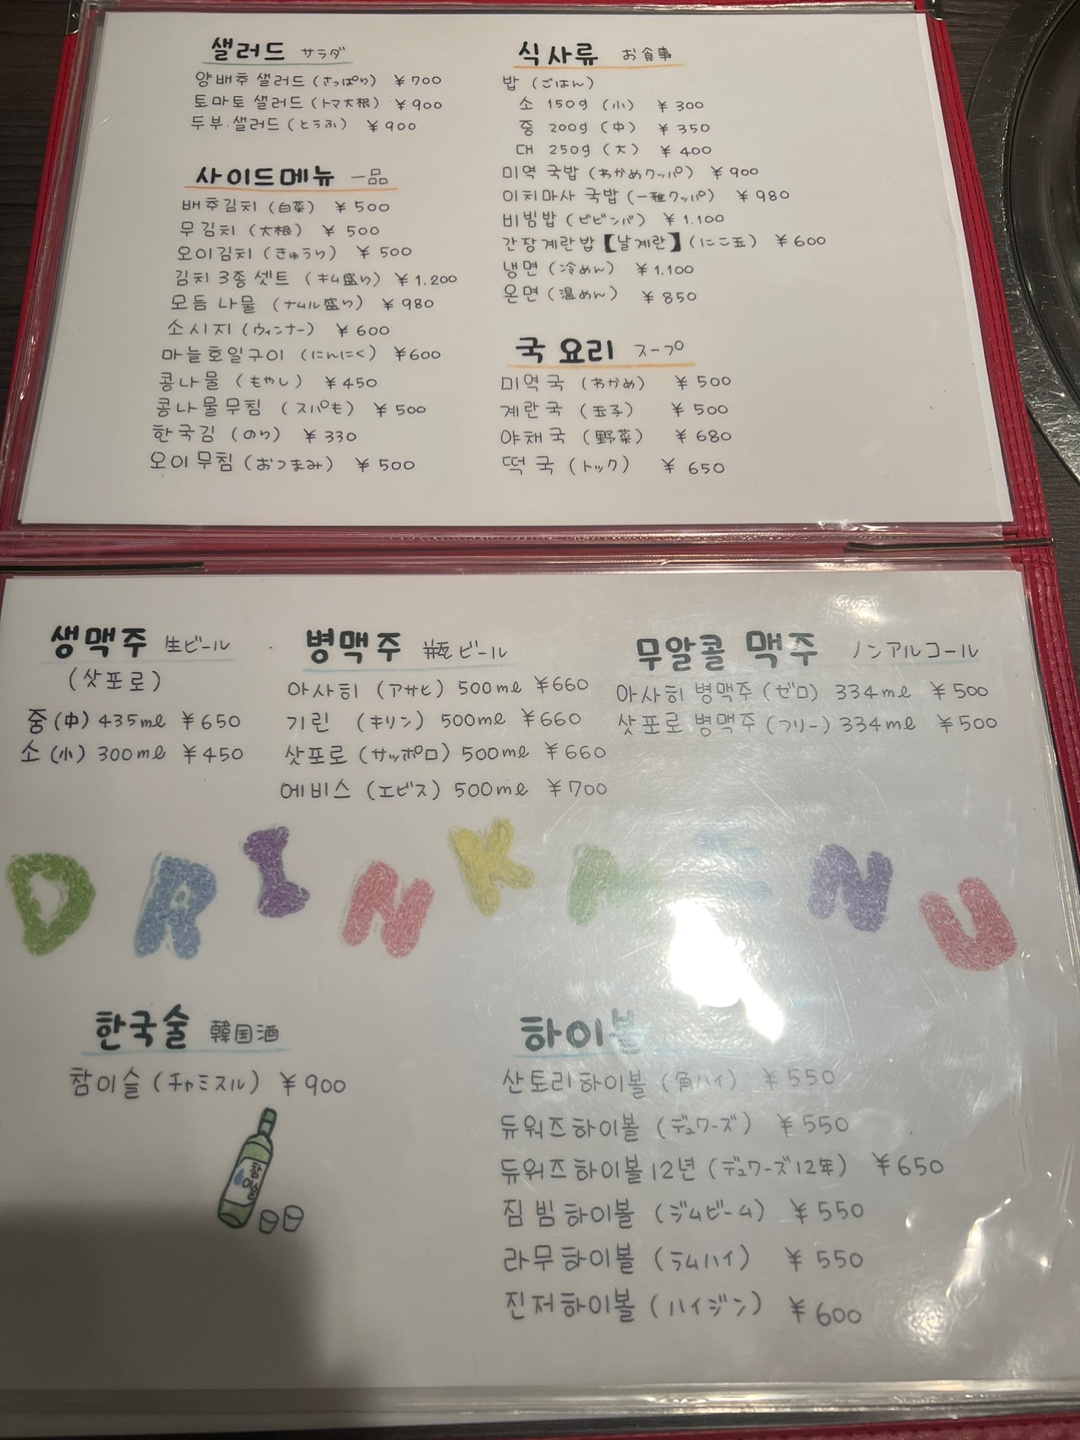 샐러드 サラダ
양배추 샐러드 (さっぱり) ¥700
토마토 샐러드 (トマ大根) ¥900
두부 샐러드 (とうふ) ¥900
사이드메뉴 一品
배추김치 (白菜) ¥500
무김치 (大根) ¥500
오이김치 (きゅうり) ¥500
김치 3종 셋트 (キム盛り) ¥1.200
모듬 나물 (ナムル盛り) ¥980
소시지 (ウィンナー) ¥600
마늘호일구이 (にんにく) ¥600
콩나물 (もやし) ¥450
콩나물무침 (スパも) ¥500
한국김 (のり) ¥330
오이무침 (おつまみ) ¥500
식사류 お食事
밥 (ごはん)
소 150g (小) ¥300
중 200g (中) ¥350
대 250g (大) ¥400
미역 국밥 (わかめクッパ) ¥900
이치마사 국밥 (一雅クッパ) ¥980
비빔밥 (ビビンバ) ¥1.100
간장계란밥【날계란】(にこ玉) ¥600
냉면 (冷めん) ¥1.100
온면 (温めん) ¥850
국 요리 スープ
미역국 (わかめ) ¥500
계란국 (玉子) ¥500
야채국 (野菜) ¥680
떡국 (トック) ¥650
생맥주 生ビール
(삿포로)
중(中) 435ml ¥650
소(小) 300ml ¥450
병맥주 瓶ビール
아사히 (アサヒ) 500ml ¥660
기린 (キリン) 500ml ¥660
삿포로 (サッポロ) 500ml ¥660
에비스 (エビス) 500ml ¥700
무알콜 맥주 ノンアルコール
아사히 병맥주 (ゼロ) 334ml ¥500
삿포로 병맥주 (フリー) 334ml ¥500
DRINK MENU
한국술 韓国酒
참이슬 (チャミスル) ¥900
참이슬
하이볼
산토리하이볼 (角ハイ) ¥550
듀워즈하이볼 (デュワーズ) ¥550
듀워즈하이볼12년 (デュワーズ12年) ¥650
짐빔하이볼 (ジムビーム) ¥550
라무하이볼 (ラムハイ) ¥550
진저하이볼 (ハイジン) ¥600